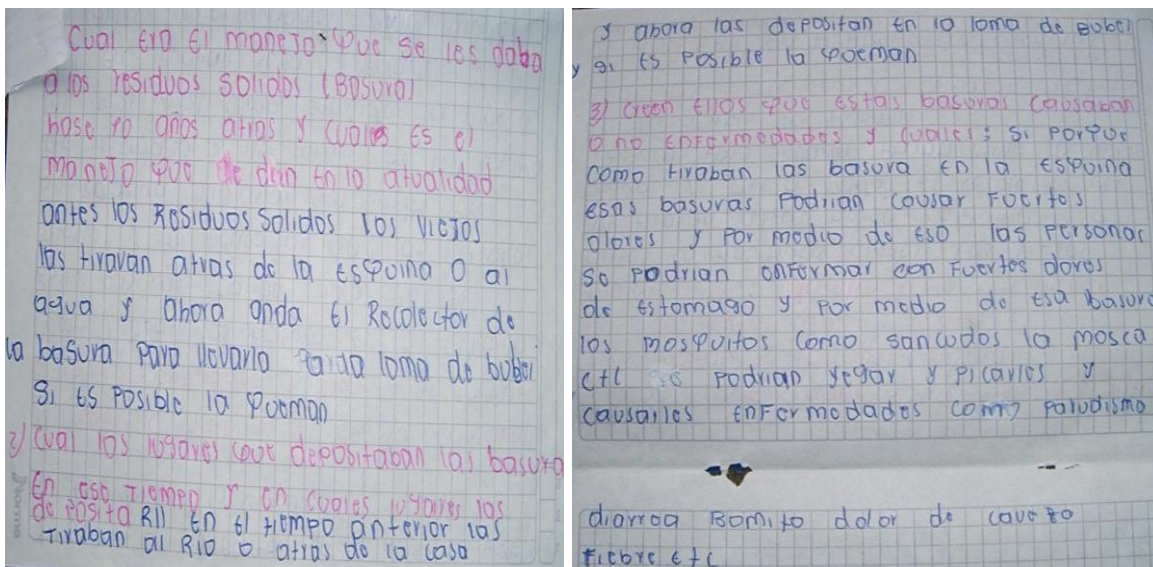 Cual era el manejo que se les daba
a los residuos solidos (Basura)
hase 10 años atras y cuales es el
manejo que le dan en la atualidad
antes los Residuos Solidos los viejos
las tiravan atras de la esquina o al
agua y ahora anda el Recolector de
la basura para llevarlo a la loma de bubei
si es posible la queman
2) Cual los lugares que depositaban las basura
En eso tiempo y en cuales lugares las
deposita RII En el tiempo anterior las
tiraban al Rio o atras de la casa
y ahora las depositan en la loma de Bubei
y si es posible la queman
3) Creen ellos que estas basuras causaban
o no enfermedades y cuales; Si porque
como tiraban las basura en la esquina
esas basuras Podrian causar Fuertes
olores y por medio de eso las personas
se podrian enfermar con Fuertes dolores
de estomago y por medio de esa basura
los mosquitos como sancudos la mosca
etc se podrian yegar y picarlos y
causarles enfermedades como paludismo
diarrea Bomito dolor de caveza
fiebre etc